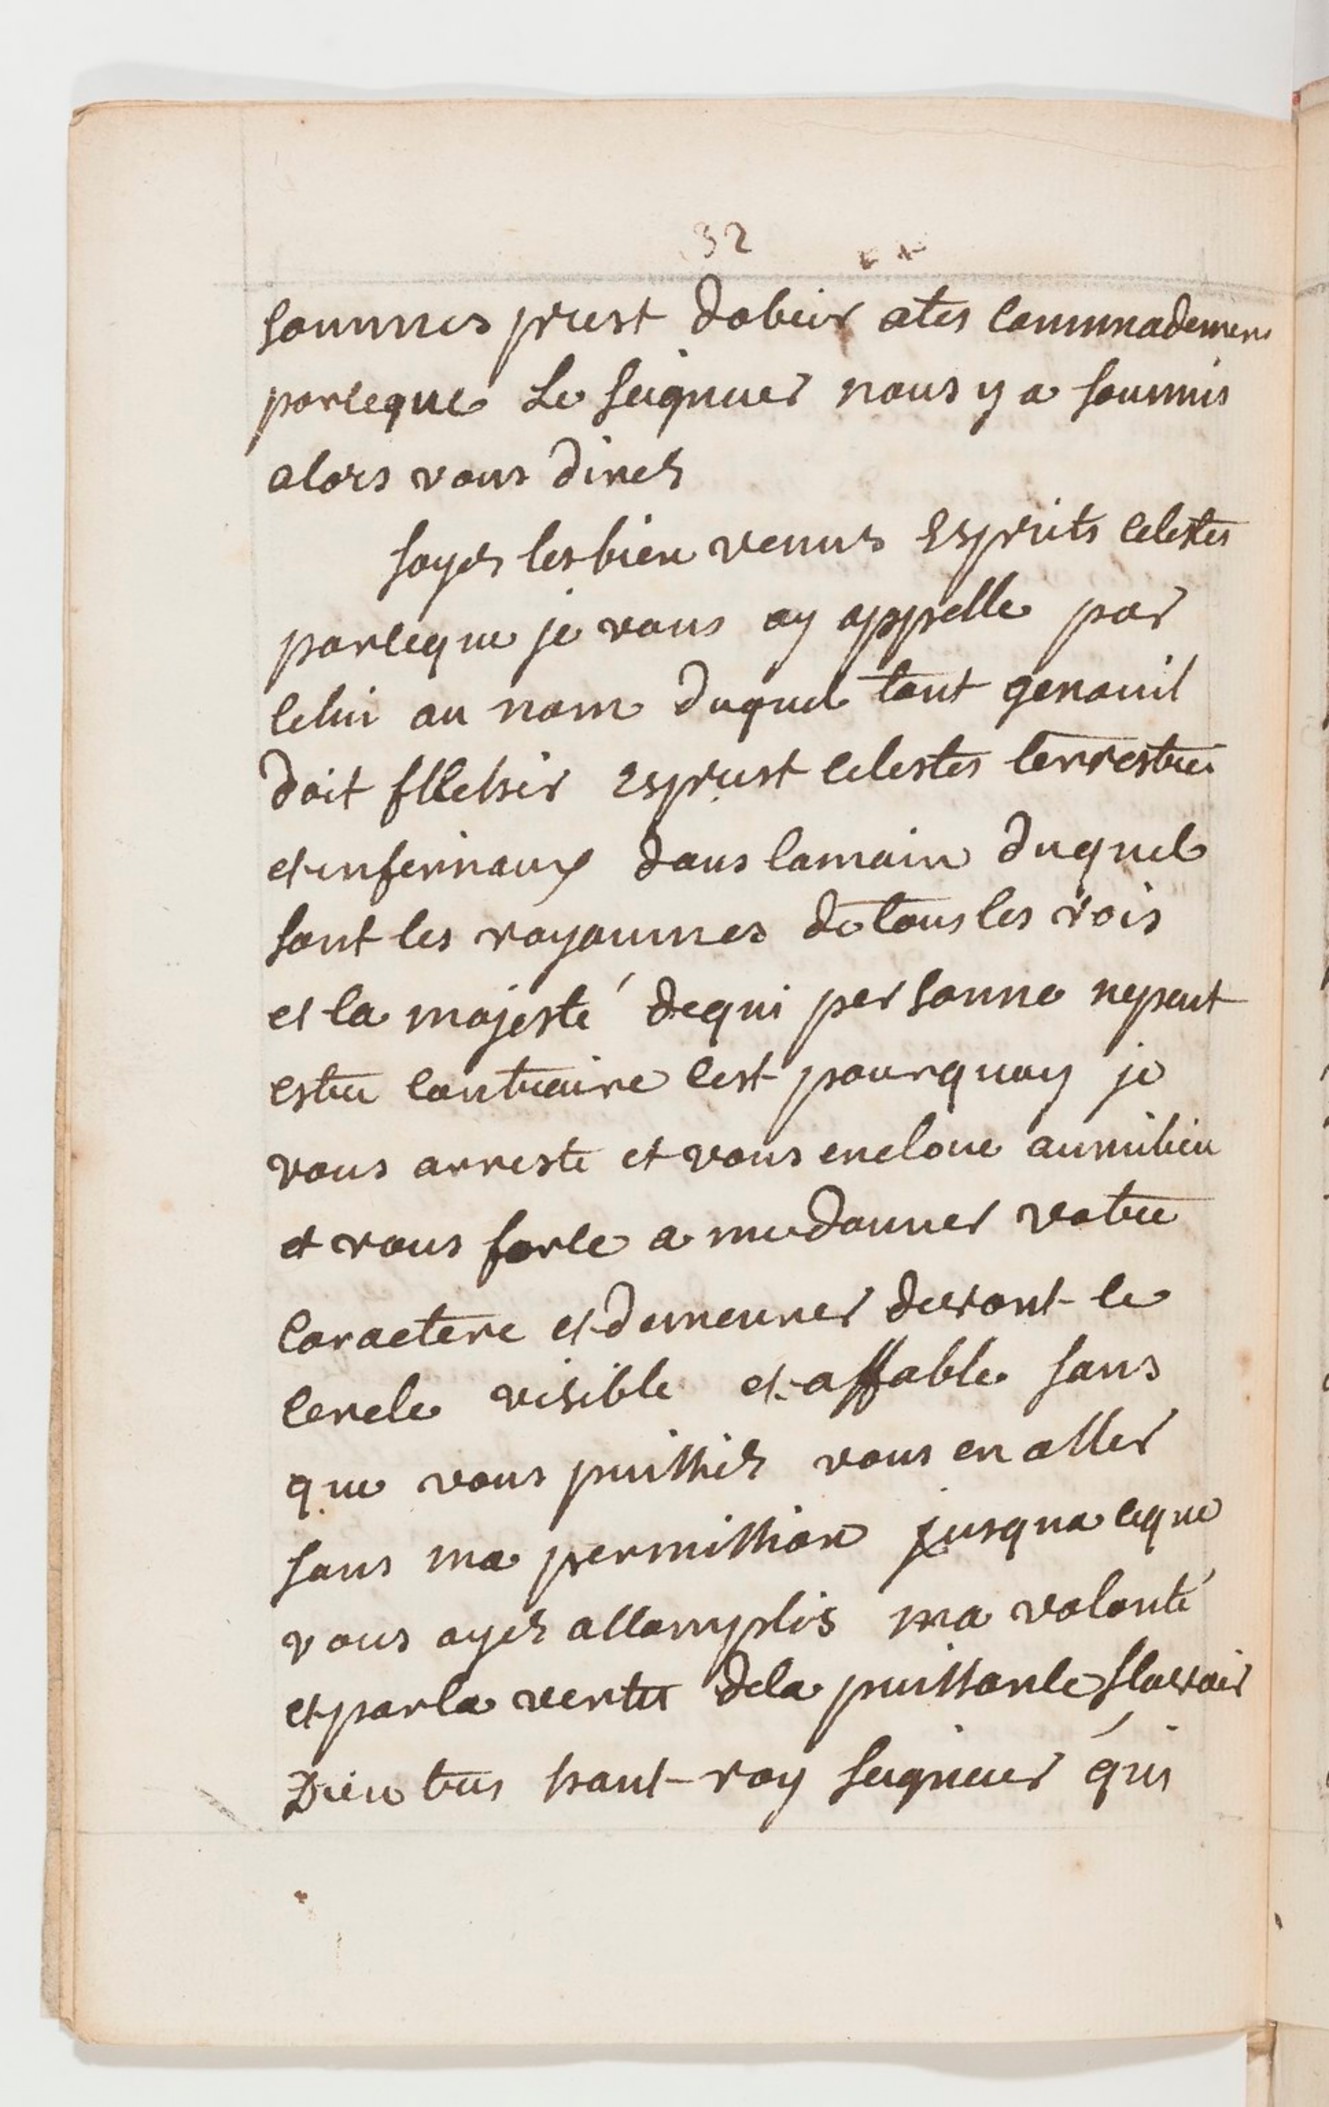 32
sommes prest dobeir ates commademens
parceque Le seigneur nous y a soumis
alors vous direz
soyez les bien venus Esprits celestes
parceque je vous ay appelle par
celui au nom duquel tout genouil
doit fllechir Esprist celestes terrestres
et infernaux dans lamain duquel
sont les royaumes de tous les rois
et la majesté dequi personne nepeut
estre contraire cest pourquoy je
vous arreste et vous encloue aumilieu
et vous force a medonner votre
caractere et demeurer devant le
cercle visible et affable sans
que vous puissiez vous en aller
sans ma permission jusqua ceque
vous ayez accomplis ma volonté
et parla vertu dela puissance
Dieu tres haut roy seigneur qui